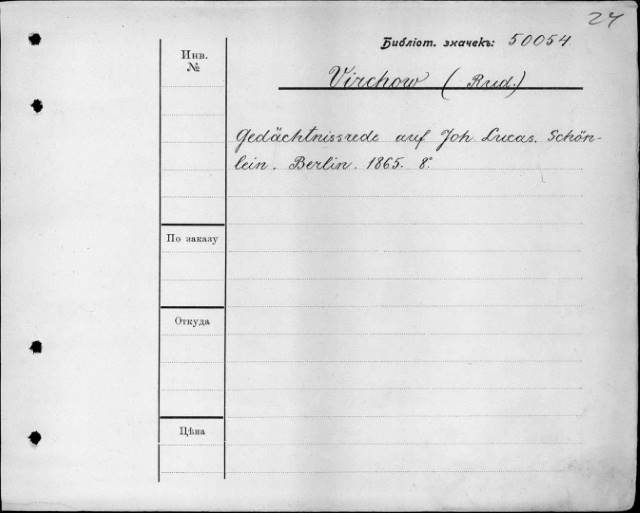 24
Библіот. значекъ: 50054
Инв.
№
Virchow (Rud.)
Gedächtnissrede auf Joh. Lucas. Schön-
lein. Berlin. 1865. 8°.
По заказу
Откуда
Цѣна